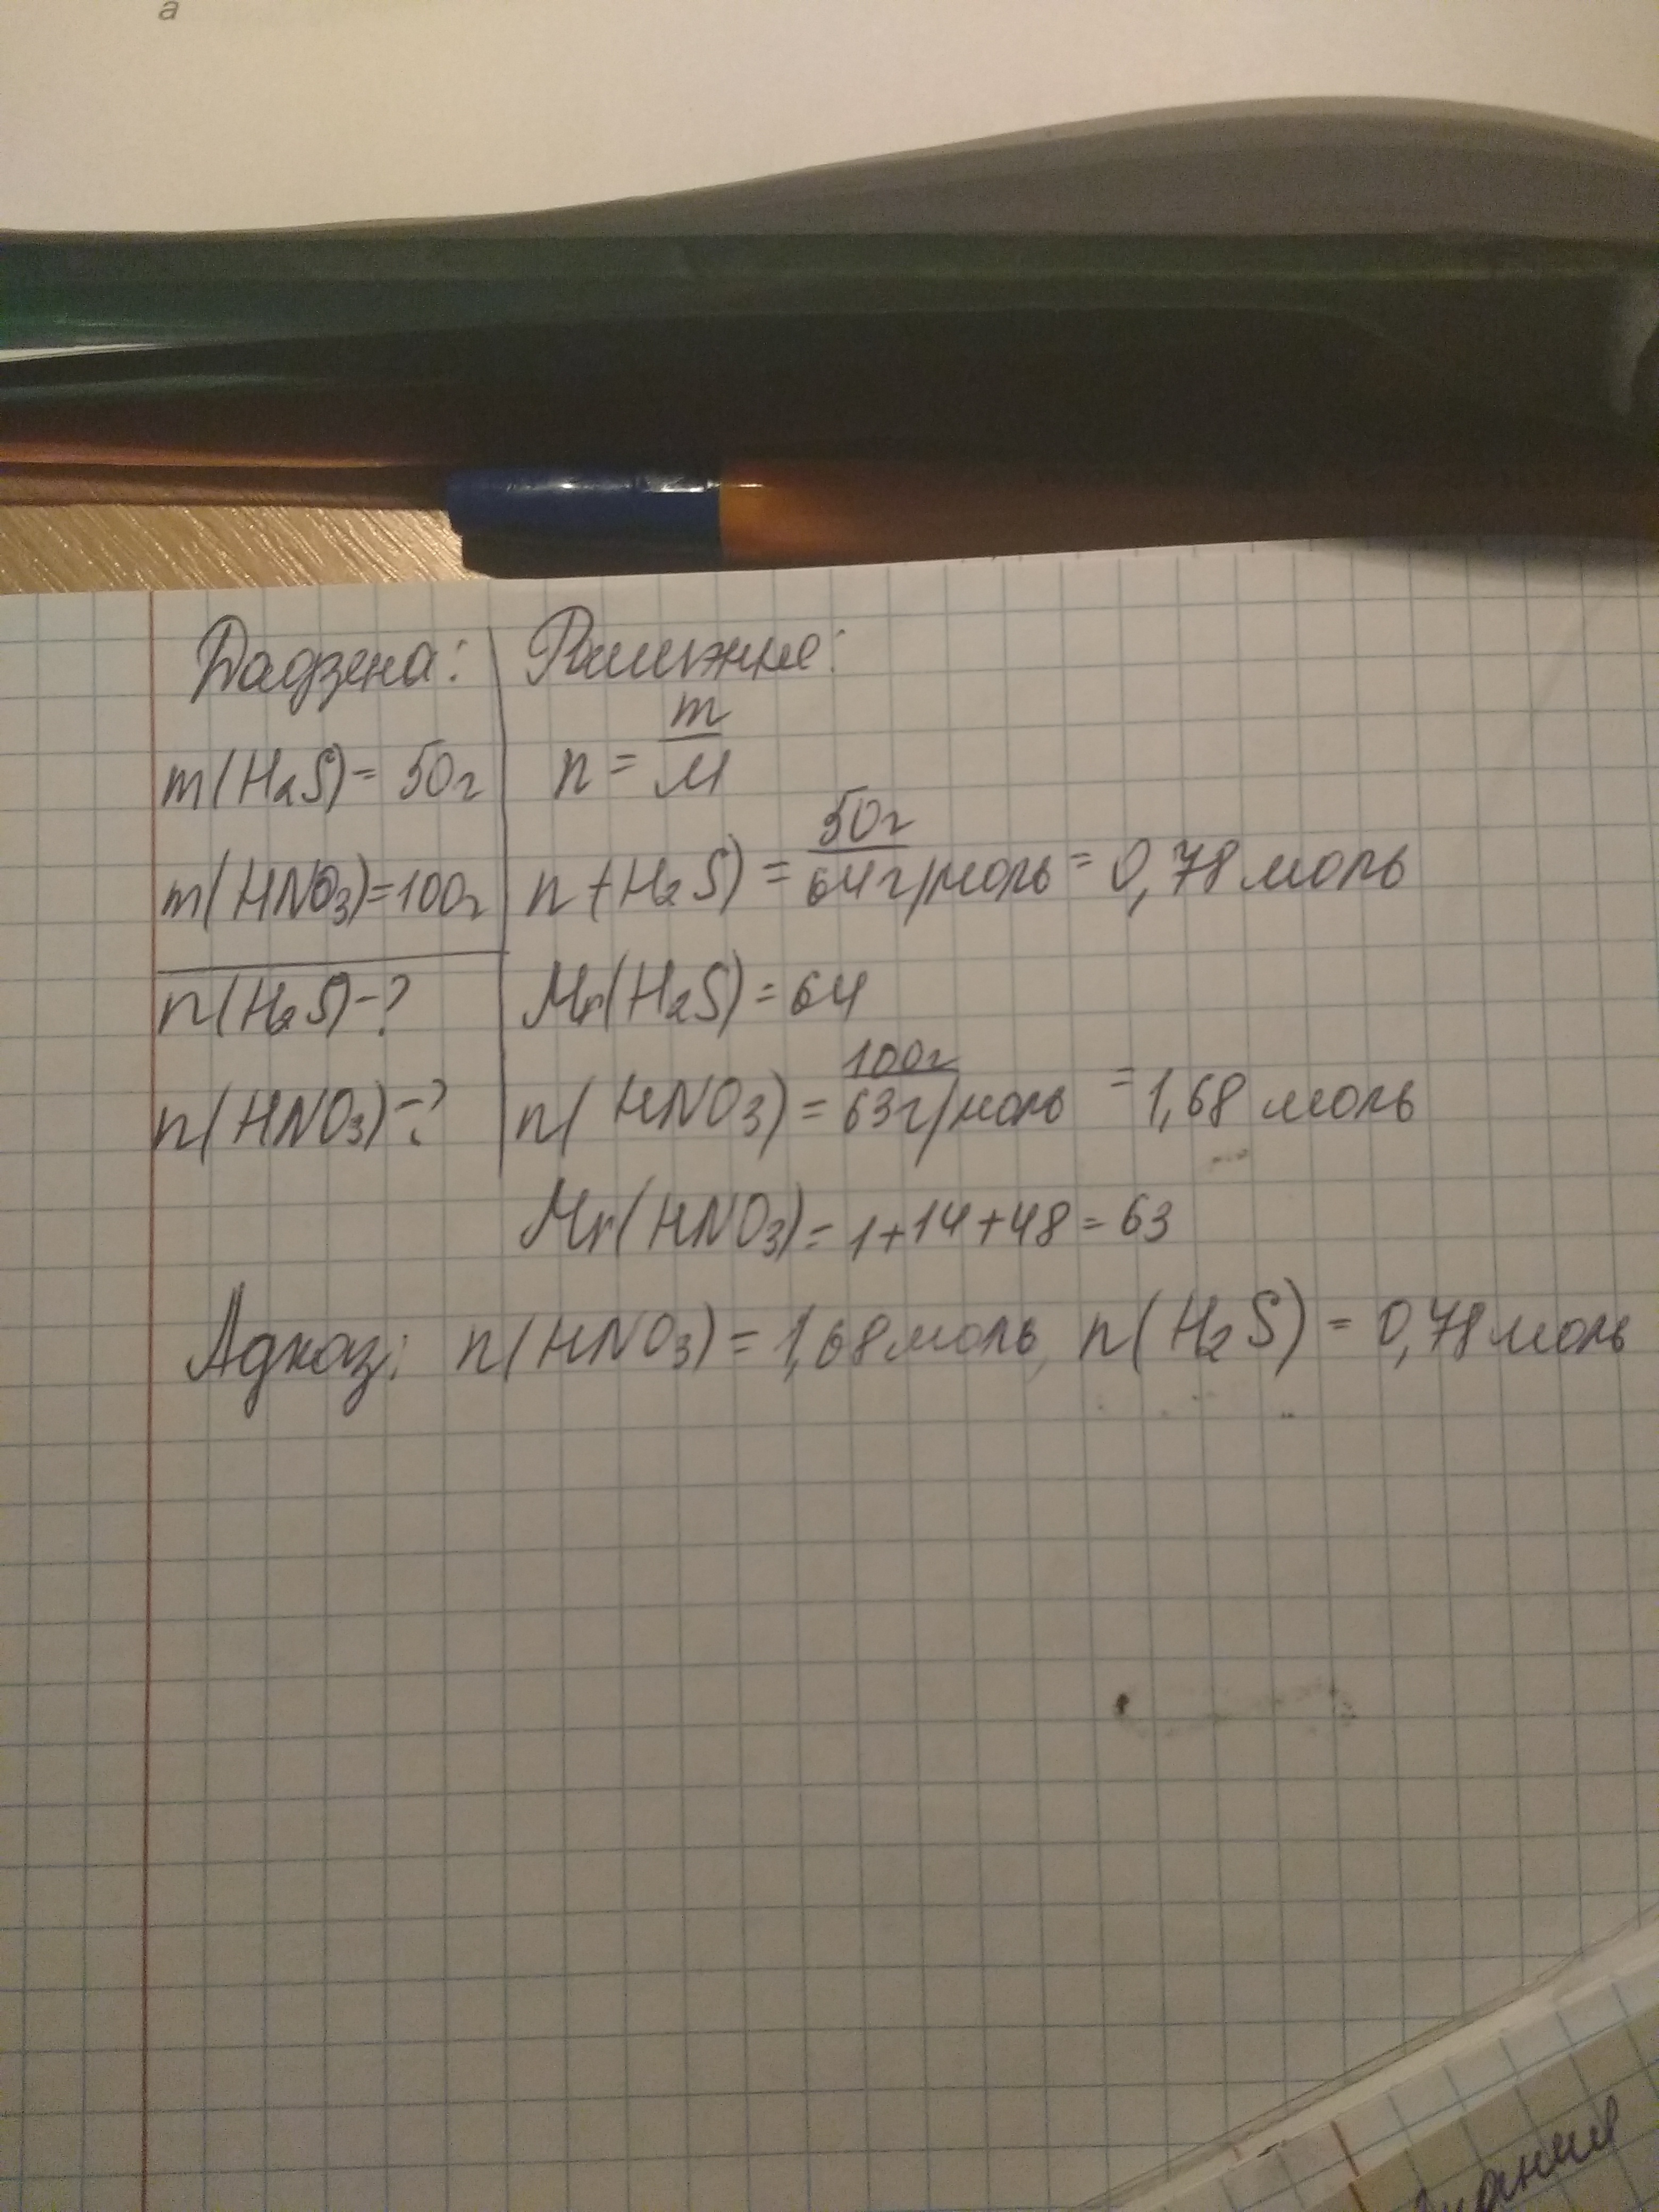 а
Дадзена:
m(H₂S)= 50г
m(HNO₃)=100г
n(H₂S)-?
n(HNO₃)-?
Рашэнне:
n = m/M
n(H₂S) = 50г/64г/моль = 0,78 моль
Mr(H₂S) = 64
n(HNO₃) = 100г/63г/моль = 1,68 моль
Mr(HNO₃) = 1+14+48 = 63
Адказ: n(HNO₃) = 1,68 моль, n(H₂S) = 0,78 моль